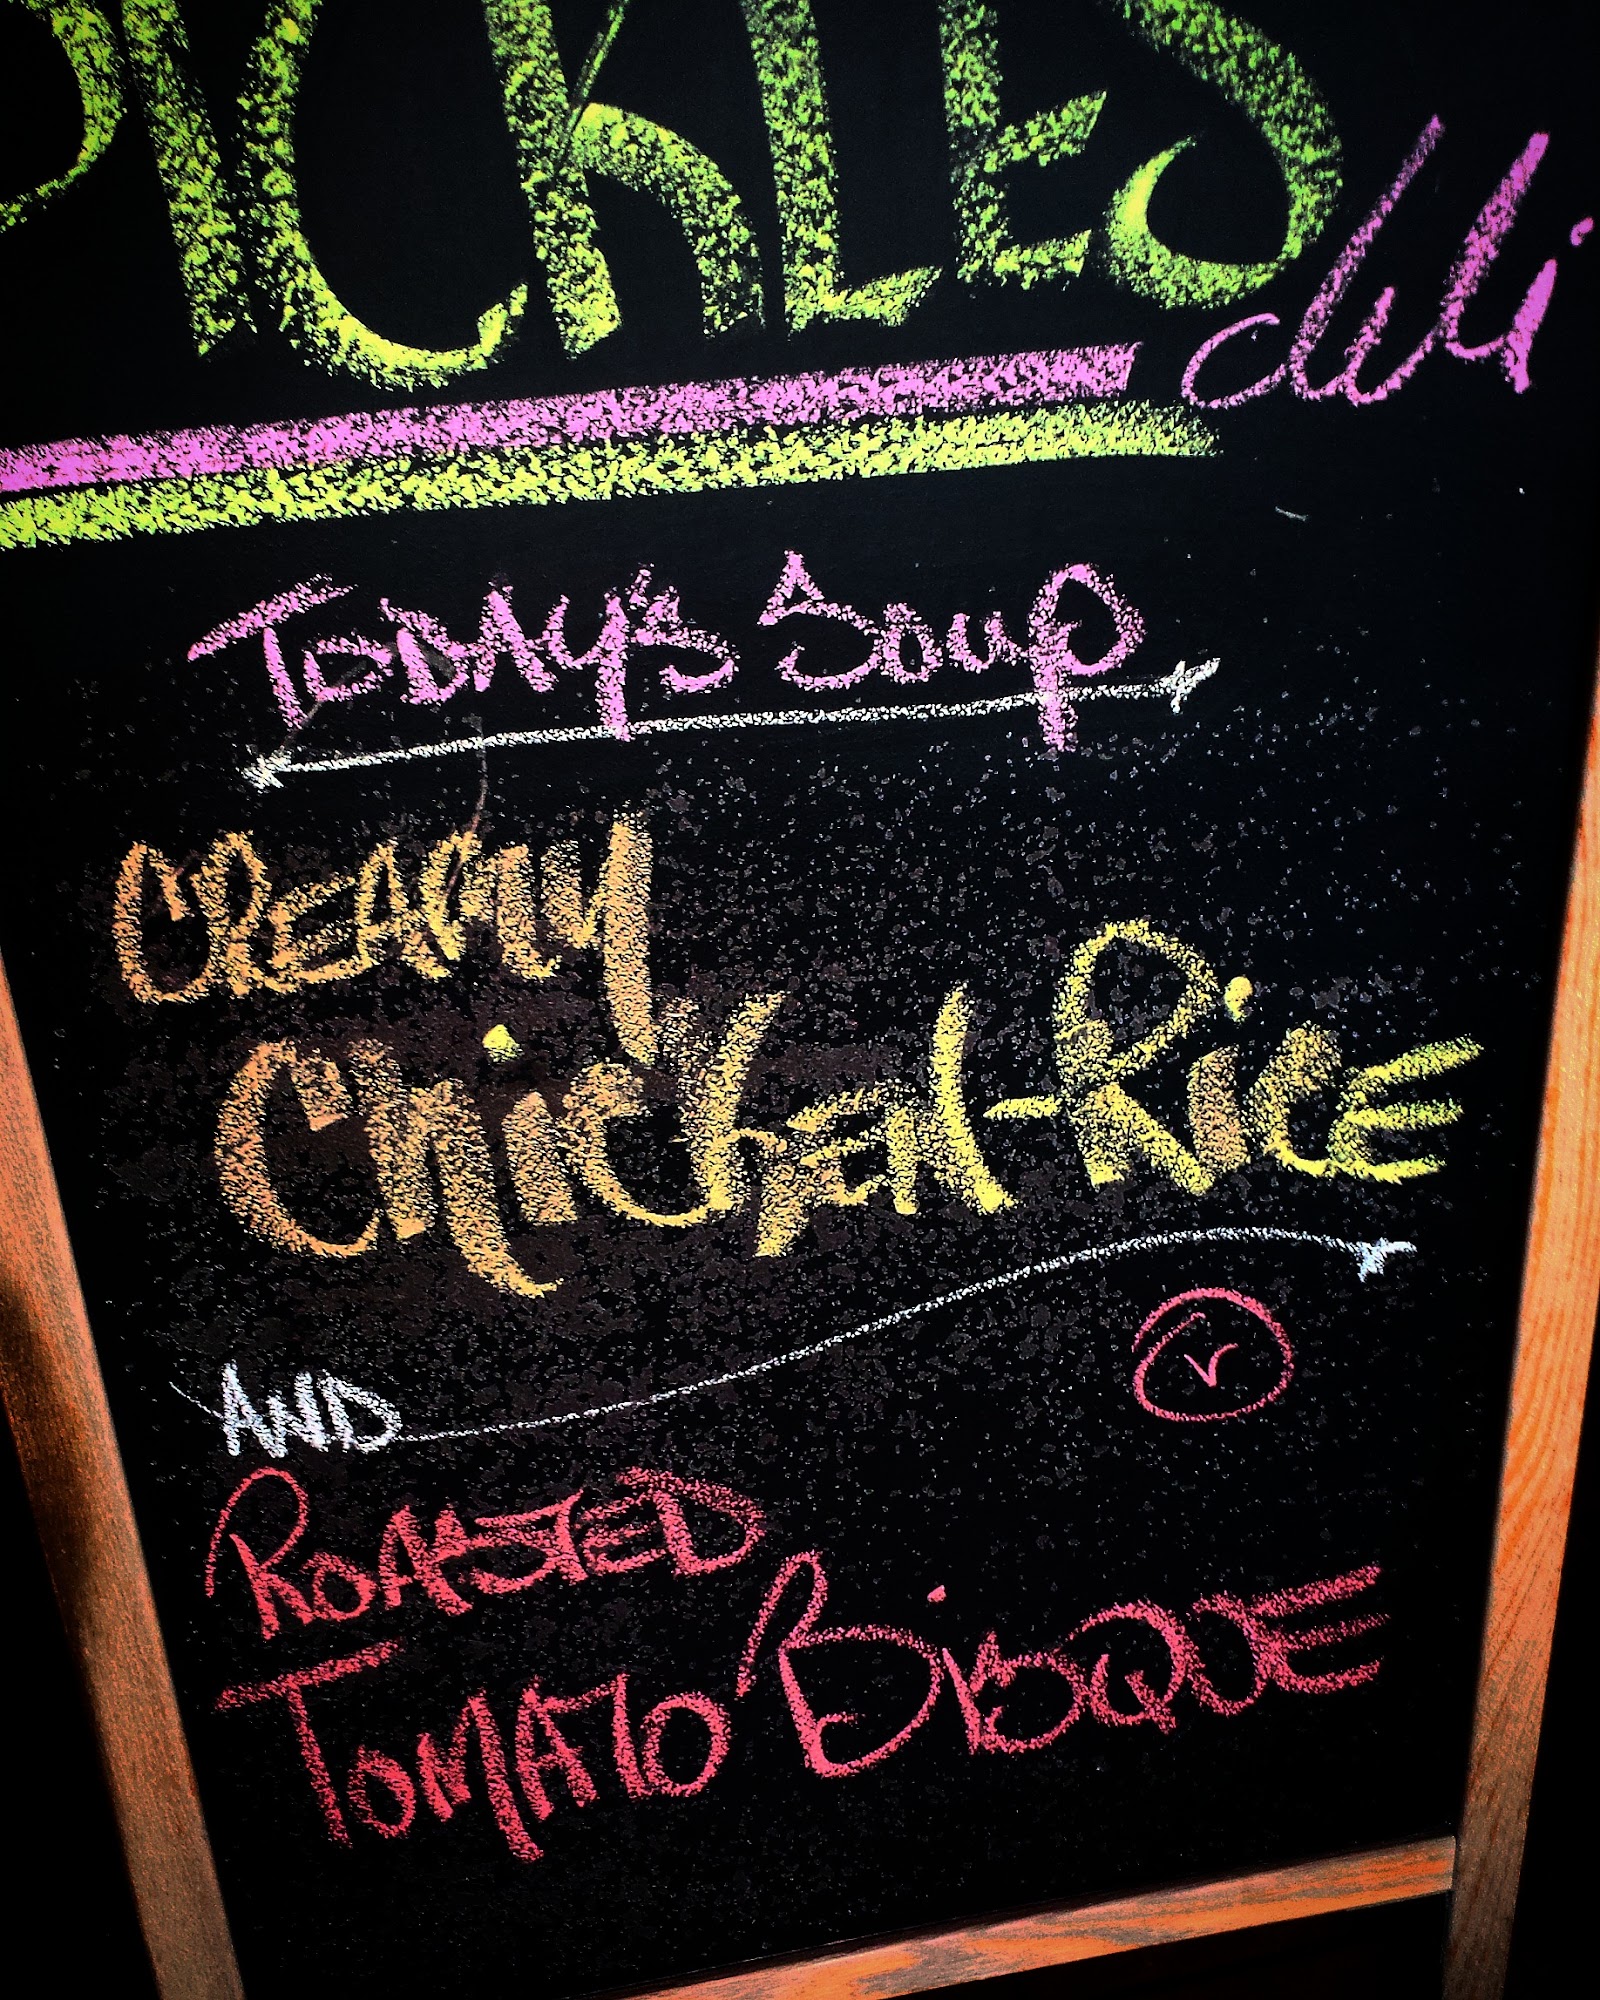 PICKLES
deli
TODAY'S SOUP
CREAMY
ChickEN-RiCE
v
AND
ROASTED
TOMATO BiSQUE